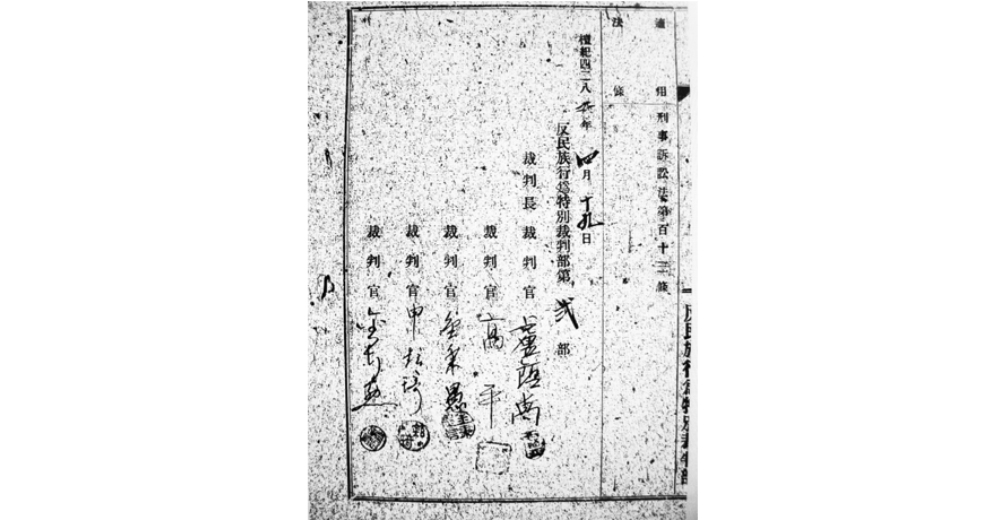 反民族行爲特別裁判部
適用
法條
刑事訴訟法第百十三條
檀紀四二八 年四月十九日
反民族行爲特別裁判部第弐部
裁判長裁判官盧
裁判官高平
裁判官金秉
裁判官申
裁判官金